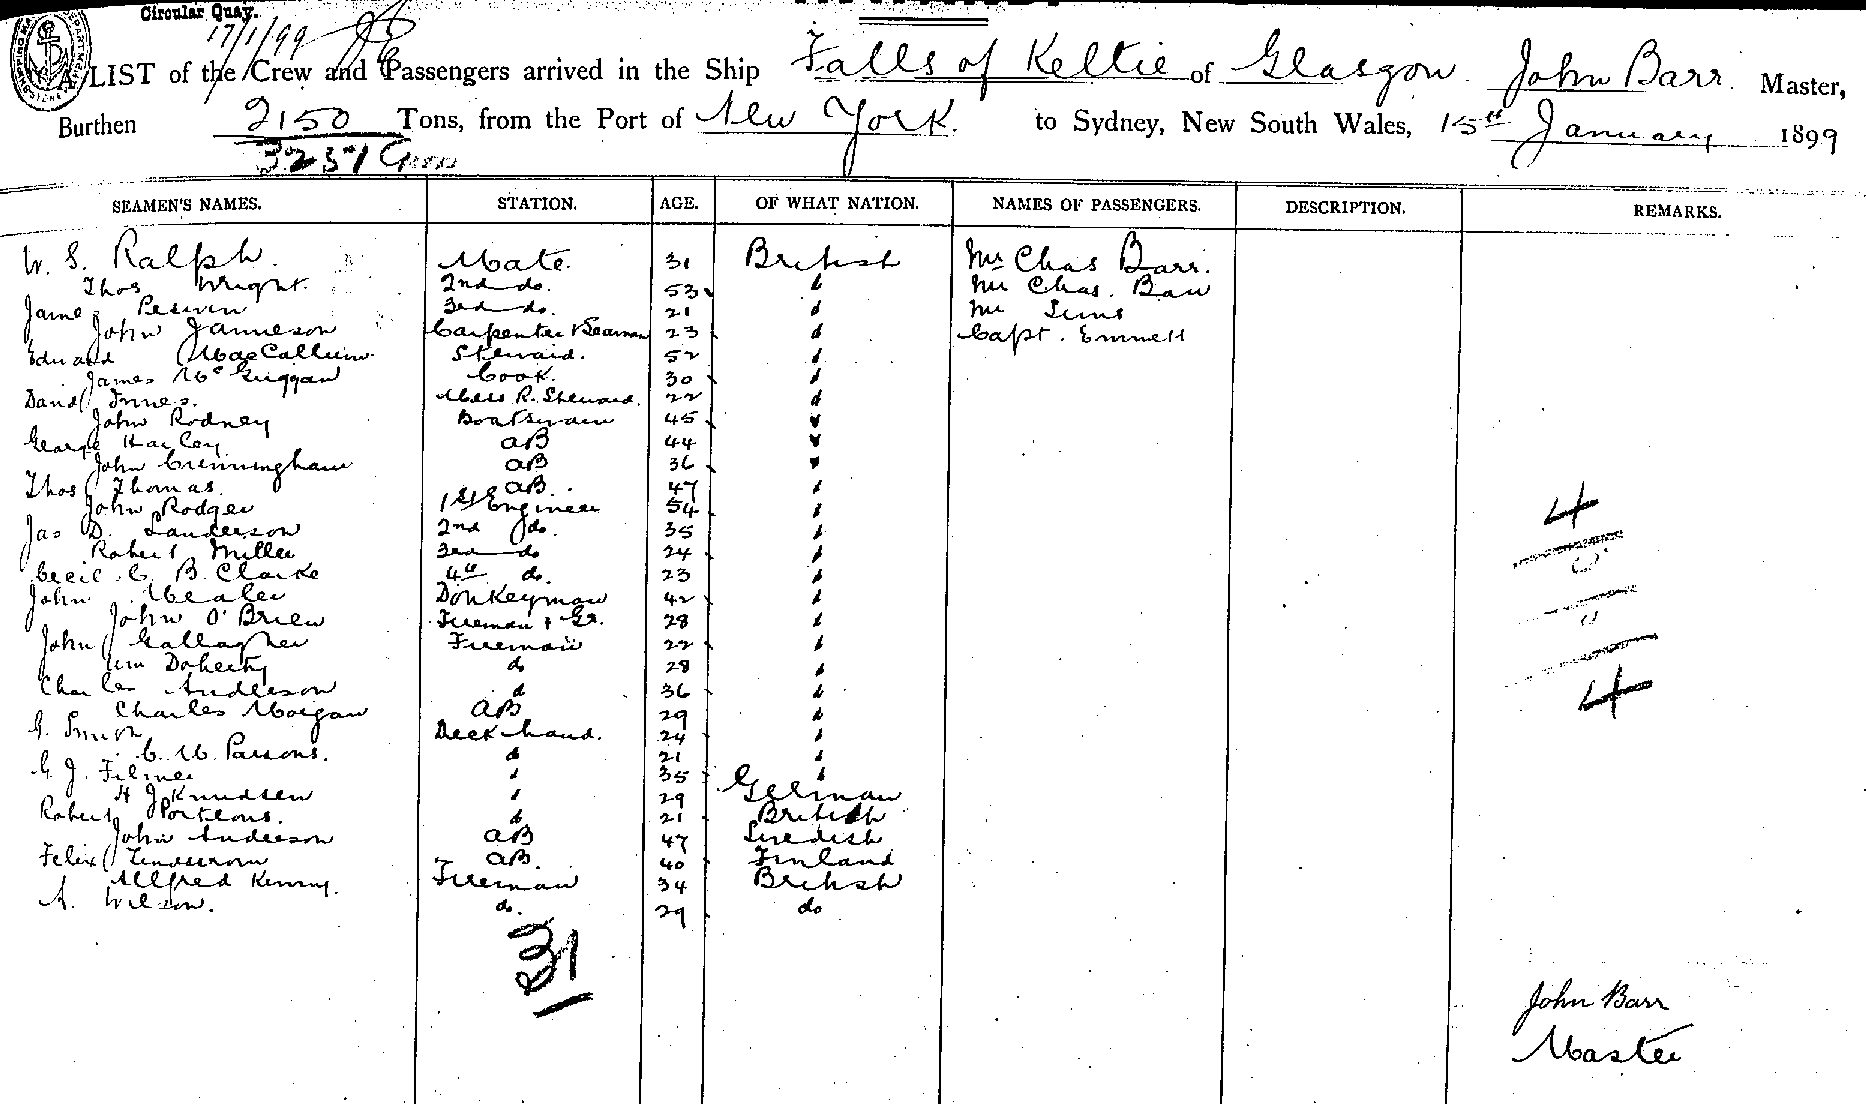 Circular Quay.
17/1/99
A LIST of the Crew and Passengers arrived in the Ship Falls of Keltie of Glasgow John Barr. Master,
Burthen 2150 Tons, from the Port of New York. to Sydney, New South Wales, 15th January 1899
3237 Gross
SEAMEN'S NAMES. STATION. AGE. OF WHAT NATION. NAMES OF PASSENGERS. DESCRIPTION. REMARKS.
W. S. Ralph. Mate. 31 British Mrs Chas Barr.
Thos Wright. 2nd do. 53 " Mr Chas. Barr
James 3rd do. 21 " Mr Sims
John Jamieson Carpenter & Seaman 23 " Capt. Emmett
Edward MacCallum. Steward. 52 "
James McGuggan Cook. 30 "
David Innes. Mess R. Steward. 22 "
John Rodney Boatswain 45 "
George Harley AB 44 "
John Cunningham AB 36 "
Thos Thomas. AB. 47 "
John Rodger 1st Engineer 54 "
Jas D. Sanderson 2nd do. 35 "
Robert Miller 3rd do 24 "
Cecil C. B. Clarke 4th do. 23 "
John Donkeyman 42 "
John O'Brien Fireman & Gr. 28 "
John Gallagher Fireman 22 "
Wm Doherty do 28 "
Charles Anderson do 36 "
Charles Morgan AB 29 "
G. Smith Deck hand. 24 "
C. W. Parsons. do 21 "
G. J. Filmer " 35 "
H J Knudsen " 29 German
Robert Porteous. do 21 British
John Anderson AB 47 Swedish
Felix Lindstrom AB. 40 Finland
Allfred Kenny. Fireman 34 British
A. Wilson. do. 29 do
31
4
0
0
4
John Barr
Master